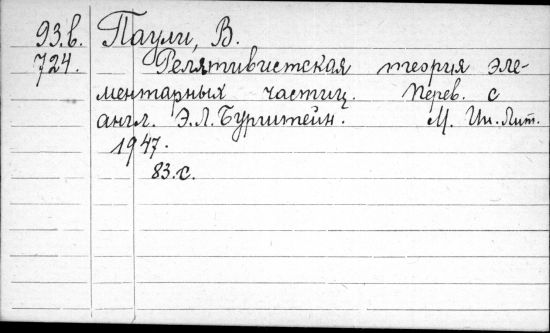 93.в. Паули, В.
724. Релятивистская теория эле-
ментарных частиц. Перев. с
англ. Э.Л.Бурштейн. М. Ин.Лит.
1947.
83.с.